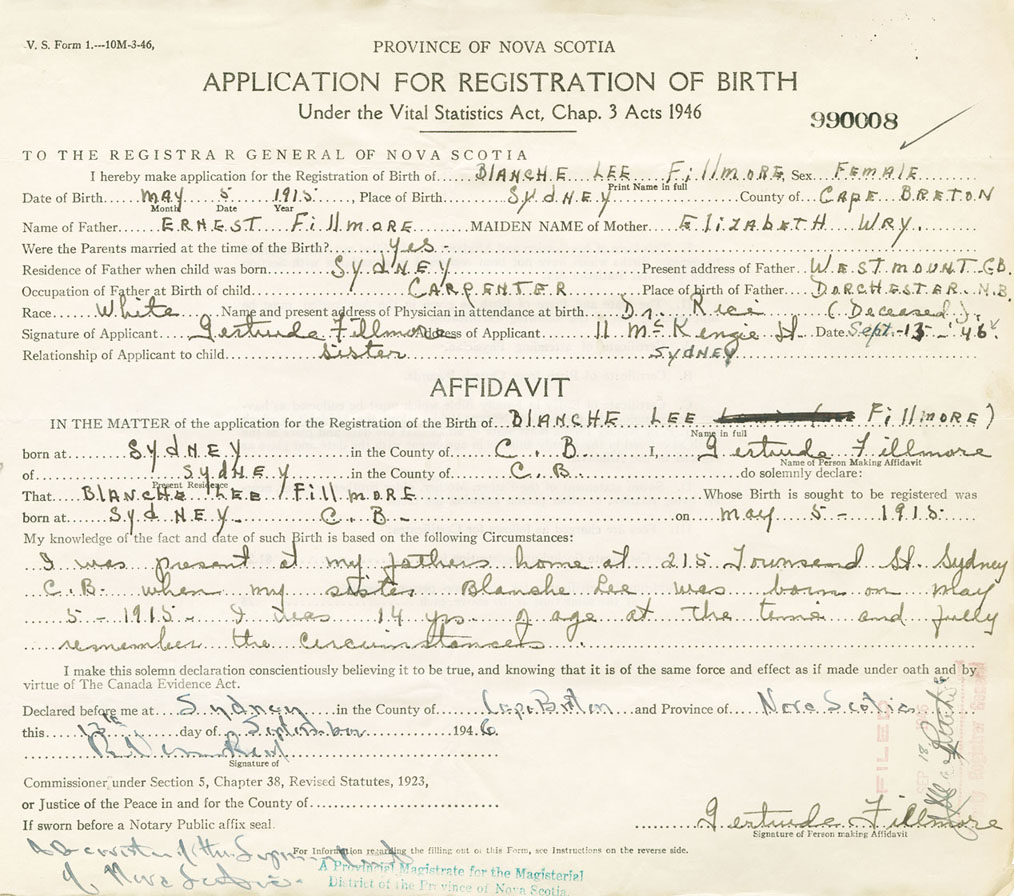 V. S. Form 1.---10M-3-46,
PROVINCE OF NOVA SCOTIA
APPLICATION FOR REGISTRATION OF BIRTH
Under the Vital Statistics Act, Chap. 3 Acts 1946
990008
TO THE REGISTRAR GENERAL OF NOVA SCOTIA
I hereby make application for the Registration of Birth of BlANCHE LEE FillMORE Sex FEMAlE
Print Name in full
Date of Birth MAY 5 1915, Place of Birth SYDNEY County of CAPE BRETON
Month Date Year
Name of Father ERNEST FillMORE MAIDEN NAME of Mother ElIZABETH WRY.
Were the Parents married at the time of the Birth? yes -
Residence of Father when child was born SYDNEY Present address of Father WESTMOUNT C.B.
Occupation of Father at Birth of child CARPENTER Place of birth of Father DORCHESTER N.B.
Race White Name and present address of Physician in attendance at birth Dr. Rice (Deceased)
Signature of Applicant Gertrude Fillmore Address of Applicant 11 McKenzie St. Date Sept-13-'46
Relationship of Applicant to child sister SYDNEY
AFFIDAVIT
IN THE MATTER of the application for the Registration of the Birth of BlANCHE LEE FillMORE)
Name in full
born at SYDNEY in the County of C. B I, Gertrude Fillmore
Name of Person Making Affidavit
of SYDNEY in the County of C. B. do solemnly declare:
Present Residence
That BlANCHE LEE FillMORE Whose Birth is sought to be registered was
born at SYdNEY C. B. on May 5 - 1915
My knowledge of the fact and date of such Birth is based on the following Circumstances:
I was present at my fathers home at 215 Townsend St. Sydney
C.B. when my sister Blanche Lee was born on May
5 - 1915 - I was 14 yrs. of age at the time and fully
remember the circumstances.
I make this solemn declaration conscientiously believing it to be true, and knowing that it is of the same force and effect as if made under oath and by
virtue of The Canada Evidence Act.
Declared before me at Sydney in the County of Cape Breton and Province of Nova Scotia
this 13th day of September 1946
Signature of
Commissioner under Section 5, Chapter 38, Revised Statutes, 1923,
or Justice of the Peace in and for the County of
If sworn before a Notary Public affix seal.
Gertrude Fillmore
Signature of Person making Affidavit
For Information regarding the filling out of this Form, see Instructions on the reverse side.
A Barrister of the Supreme Court
of Nova Scotia.
A Provincial Magistrate for the Magisterial
District of the Province of Nova Scotia.
FILED
SEP 18